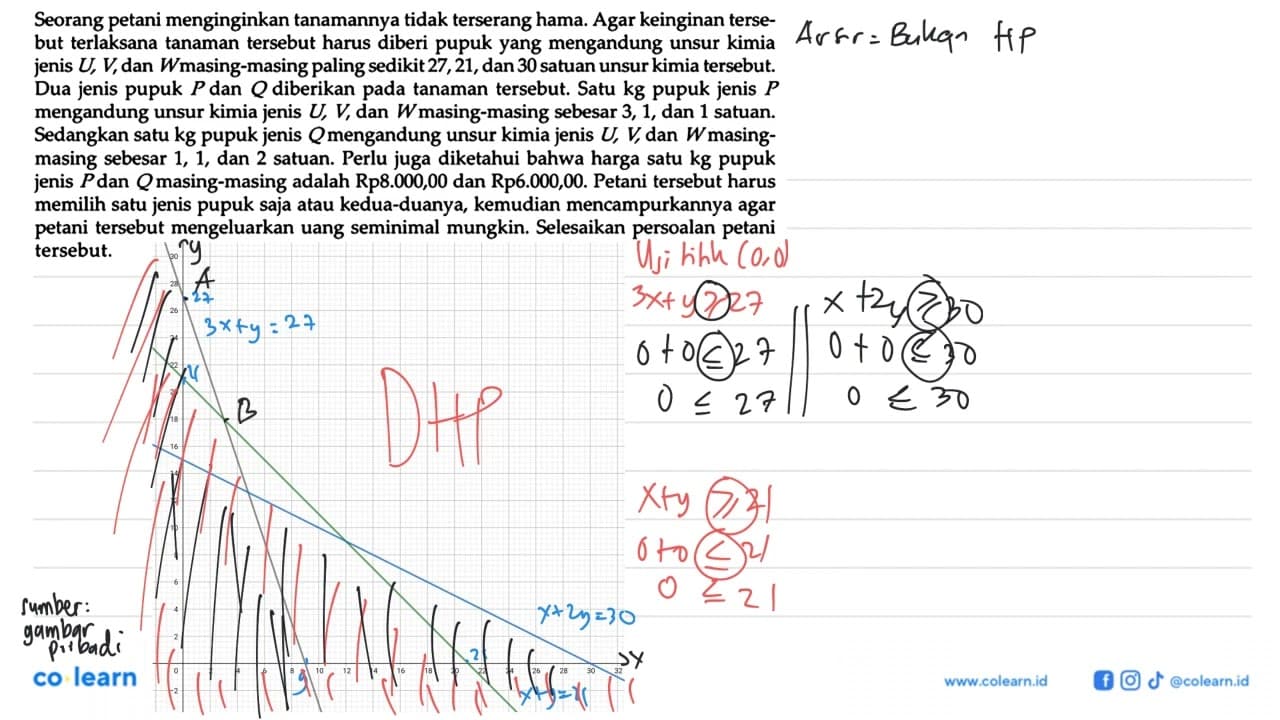 Seorang petani menginginkan tanamannya tidak terserang hama. Agar keinginan terse-
but terlaksana tanaman tersebut harus diberi pupuk yang mengandung unsur kimia
jenis U, V, dan W masing-masing paling sedikit 27, 21, dan 30 satuan unsur kimia tersebut.
Dua jenis pupuk P dan Q diberikan pada tanaman tersebut. Satu kg pupuk jenis P
mengandung unsur kimia jenis U, V, dan W masing-masing sebesar 3, 1, dan 1 satuan.
Sedangkan satu kg pupuk jenis Q mengandung unsur kimia jenis U, V, dan W masing-
masing sebesar 1, 1, dan 2 satuan. Perlu juga diketahui bahwa harga satu kg pupuk
jenis P dan Q masing-masing adalah Rp8.000,00 dan Rp6.000,00. Petani tersebut harus
memilih satu jenis pupuk saja atau kedua-duanya, kemudian mencampurkannya agar
petani tersebut mengeluarkan uang seminimal mungkin. Selesaikan persoalan petani
tersebut.
Arsir = Bukan HP
y
A
27
3x+y=27
B
DHP
x+2y=30
21
9
x
Uji titik (0,0)
3x+y≥27
0+0≤27
0 ≤ 27
x+2y≥30
0+0≤30
0 ≤ 30
x+y≥21
0+0≤21
0 ≤ 21
sumber:
gambar
pribadi
30
28
26
18
16
6
4
2
0
-2
4
8
10
12
16
18
22
26
28
30
32
co learn
www.colearn.id
@colearn.id